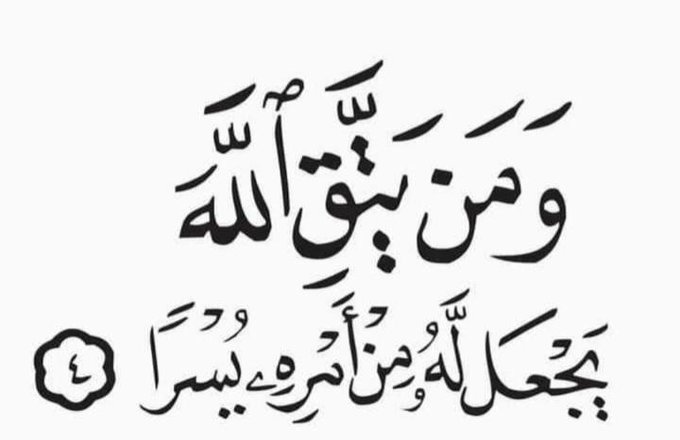 وَمَن يَتَّقِ ٱللَّهَ
يَجْعَل لَّهُۥ مِنْ أَمْرِهِۦ يُسْرًا ٤